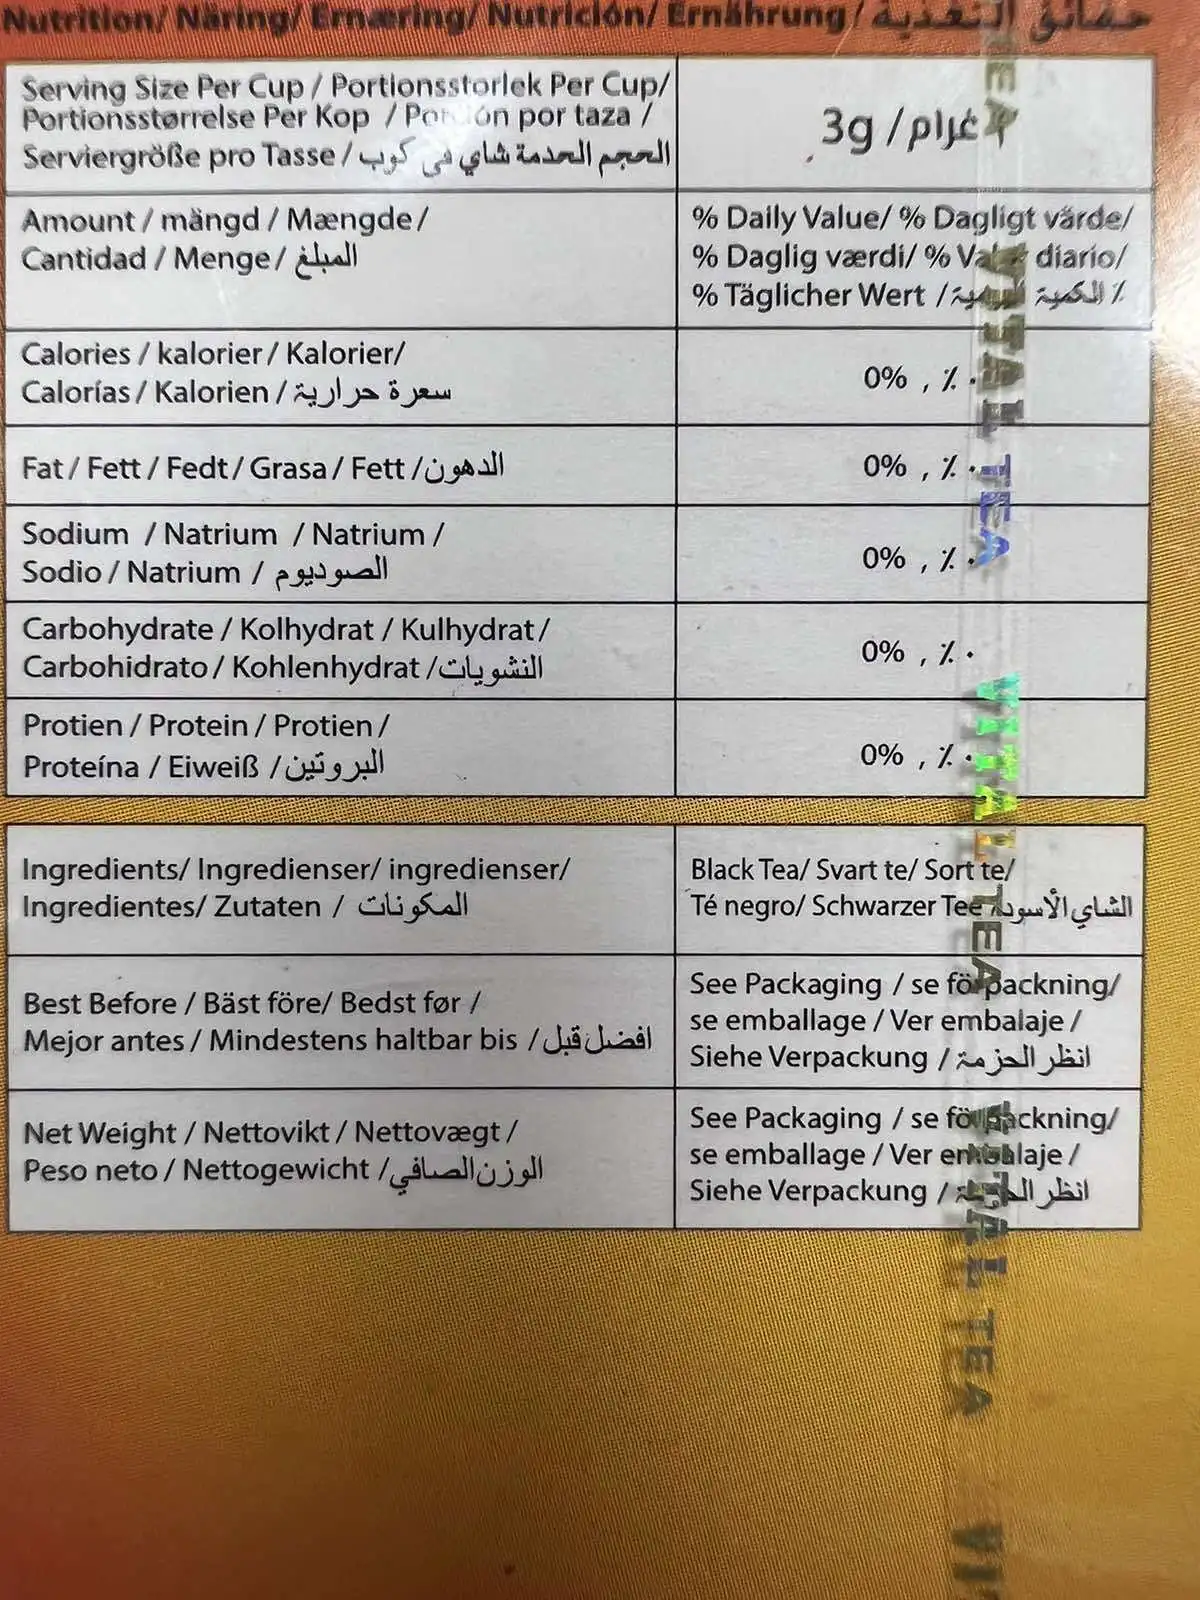 Nutrition/ Näring/ Ernæring/ Nutrición/ Ernährung/ حقائق التغذية
Serving Size Per Cup / Portionsstorlek Per Cup/
Portionsstørrelse Per Kop / Porción por taza /
Serviergröße pro Tasse / الحجم الحدمة شاي في كوب
3g / غرام
Amount / mängd / Mængde /
Cantidad / Menge / المبلغ
% Daily Value/ % Dagligt värde/
% Daglig værdi/ % Valor diario/
% Täglicher Wert / ٪ الكمية اليومية
Calories / kalorier / Kalorier/
Calorías / Kalorien / سعرة حرارية
0% , ٪ ٠
Fat / Fett / Fedt / Grasa / Fett / الدهون
0% , ٪ ٠
Sodium / Natrium / Natrium /
Sodio / Natrium / الصوديوم
0% , ٪ ٠
Carbohydrate / Kolhydrat / Kulhydrat /
Carbohidrato / Kohlenhydrat / النشويات
0% , ٪ ٠
Protien / Protein / Protien /
Proteína / Eiweiß / البروتين
0% , ٪ ٠
Ingredients/ Ingredienser/ ingredienser/
Ingredientes/ Zutaten / المكونات
Black Tea/ Svart te/ Sort te/
Té negro/ Schwarzer Tee / الشاي الأسود
Best Before / Bäst före/ Bedst før /
Mejor antes / Mindestens haltbar bis / افضل قبل
See Packaging / se förpackning/
se emballage / Ver embalaje /
Siehe Verpackung / انظر الحزمة
Net Weight / Nettovikt / Nettovægt /
Peso neto / Nettogewicht / الوزن الصافي
See Packaging / se förpackning/
se emballage / Ver embalaje /
Siehe Verpackung / انظر الحزمة
TEA VITAL TEA VITAL TEA VITAL TEA VI